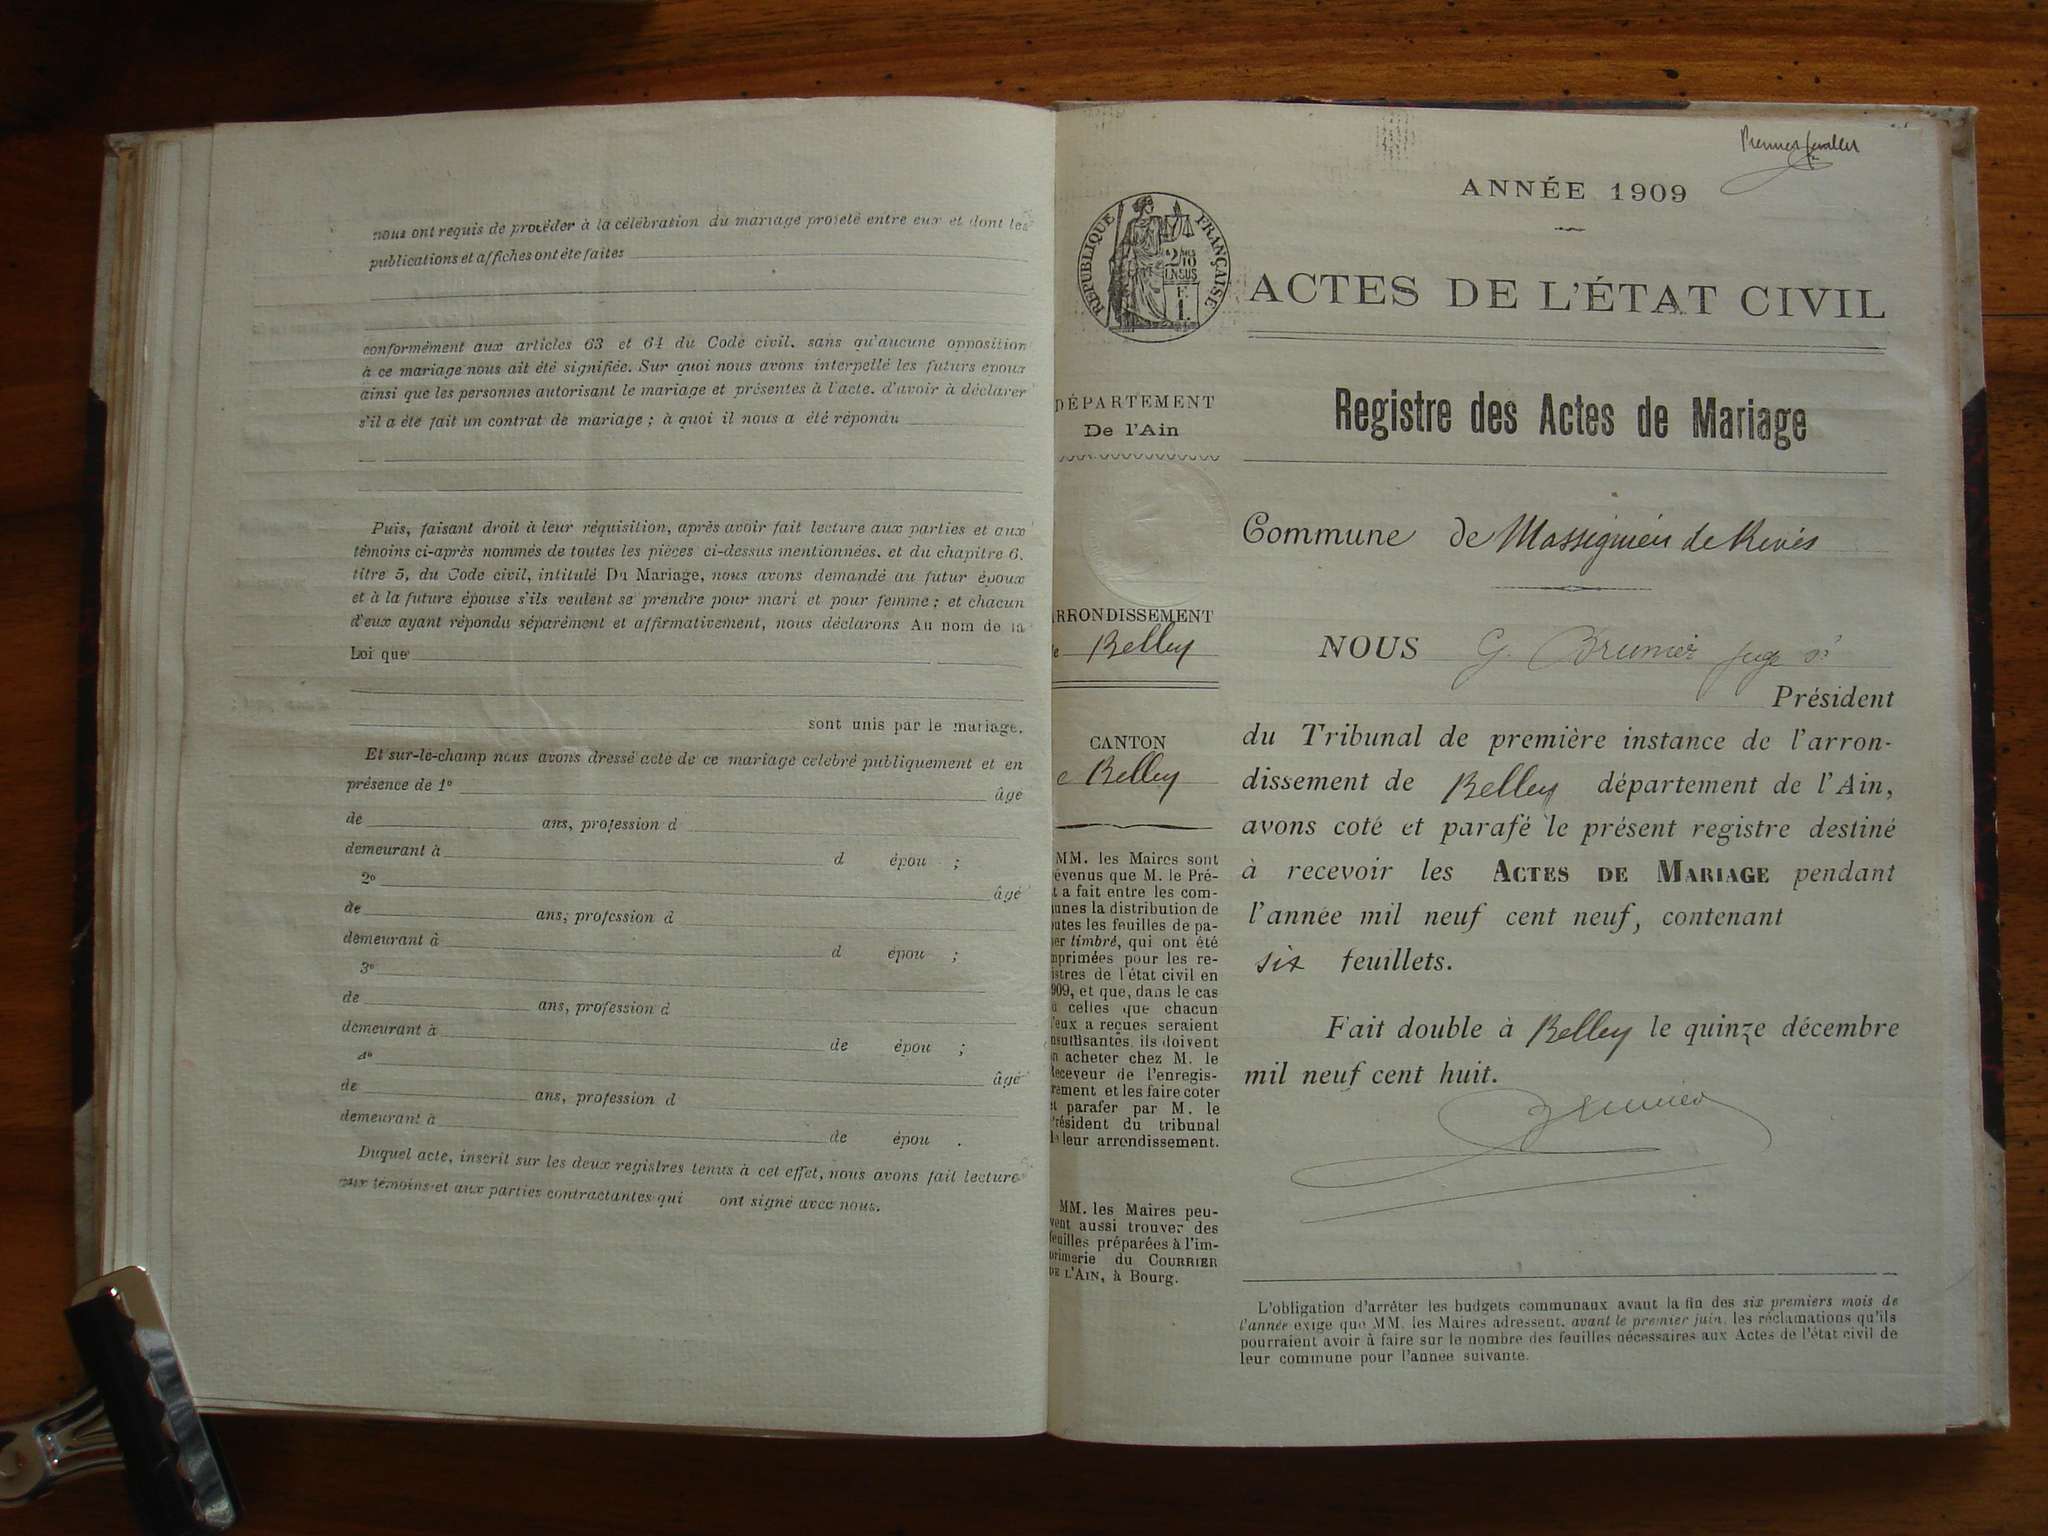 nous ont requis de procéder à la célébration du mariage projeté entre eux et dont les
publications et affiches ont été faites
conformément aux articles 63 et 64 du Code civil, sans qu'aucune opposition
à ce mariage nous ait été signifiée. Sur quoi nous avons interpellé les futurs époux
ainsi que les personnes autorisant le mariage et présentes à l'acte, d'avoir à déclarer
s'il a été fait un contrat de mariage ; à quoi il nous a été répondu
Puis, faisant droit à leur réquisition, après avoir fait lecture aux parties et aux
témoins ci-après nommés de toutes les pièces ci-dessus mentionnées, et du chapitre 6,
titre 5, du Code civil, intitulé Du Mariage, nous avons demandé au futur époux
et à la future épouse s'ils veulent se prendre pour mari et pour femme ; et chacun
d'eux ayant répondu séparément et affirmativement, nous déclarons Au nom de la
Loi que
sont unis par le mariage.
Et sur-le-champ nous avons dressé acte de ce mariage célébré publiquement et en
présence de 1º âgé
de ans, profession d
demeurant à d épou ;
2º âgé
de ans, profession d
demeurant à d épou ;
3º
de ans, profession d
demeurant à de épou ;
4º âgé
de ans, profession d
demeurant à de épou .
Duquel acte, inscrit sur les deux registres tenus à cet effet, nous avons fait lecture
aux témoins et aux parties contractantes qui ont signé avec nous.
Premier feuillet
ANNÉE 1909
RÉPUBLIQUE FRANÇAISE
ACTES DE L'ÉTAT CIVIL
DÉPARTEMENT
De l'Ain
Registre des Actes de Mariage
Commune de Massignieu de Rives
ARRONDISSEMENT
de Belley
CANTON
de Belley
MM. les Maires sont
évenus que M. le Pré-
t a fait entre les com-
unes la distribution de
outes les feuilles de pa-
er timbré, qui ont été
mprimées pour les re-
istres de l'état civil en
909, et que, dans le cas
ù celles que chacun
'eux a reçues seraient
nsuffisantes, ils doivent
n acheter chez M. le
Receveur de l'enregis-
rement et les faire coter
et parafer par M. le
Président du tribunal
de leur arrondissement.
MM. les Maires peu-
vent aussi trouver des
feuilles préparées à l'im-
primerie du COURRIER
DE L'AIN, à Bourg.
NOUS G. Brunier juge
Président
du Tribunal de première instance de l'arron-
dissement de Belley département de l'Ain,
avons coté et parafé le présent registre destiné
à recevoir les ACTES DE MARIAGE pendant
l'année mil neuf cent neuf, contenant
six feuillets.
Fait double à Belley le quinze décembre
mil neuf cent huit.
Brunier
L'obligation d'arrêter les budgets communaux avant la fin des six premiers mois de
l'année exige que MM. les Maires adressent, avant le premier juin, les réclamations qu'ils
pourraient avoir à faire sur le nombre des feuilles nécessaires aux Actes de l'état civil de
leur commune pour l'année suivante.